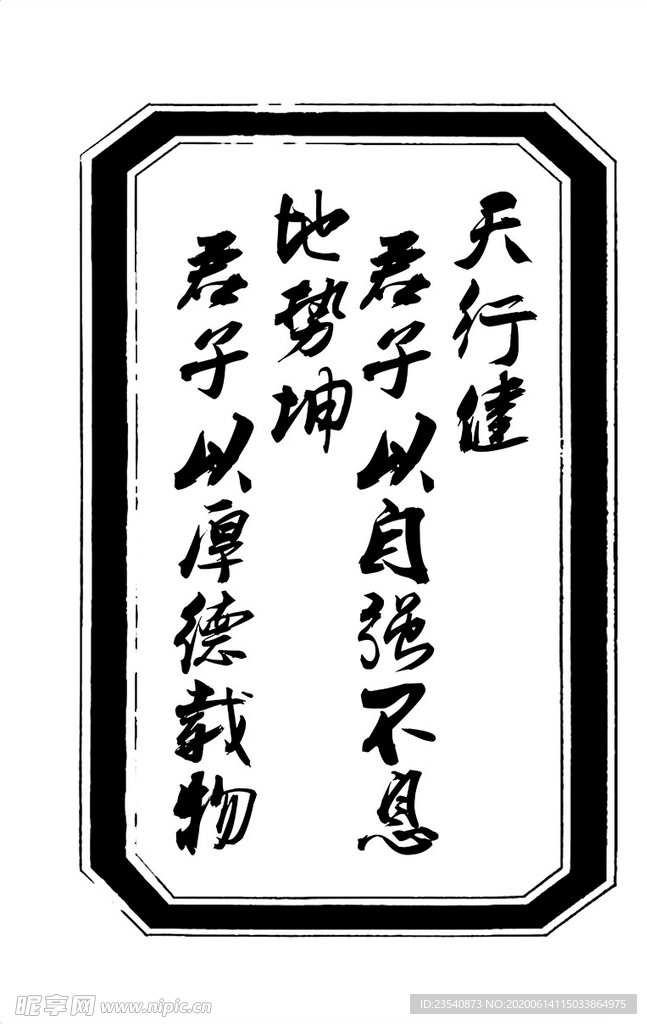 天行健
君子以自强不息
地势坤
君子以厚德载物
昵享网 www.nipic.cn
ID:23540873 NO:20200614115033864975